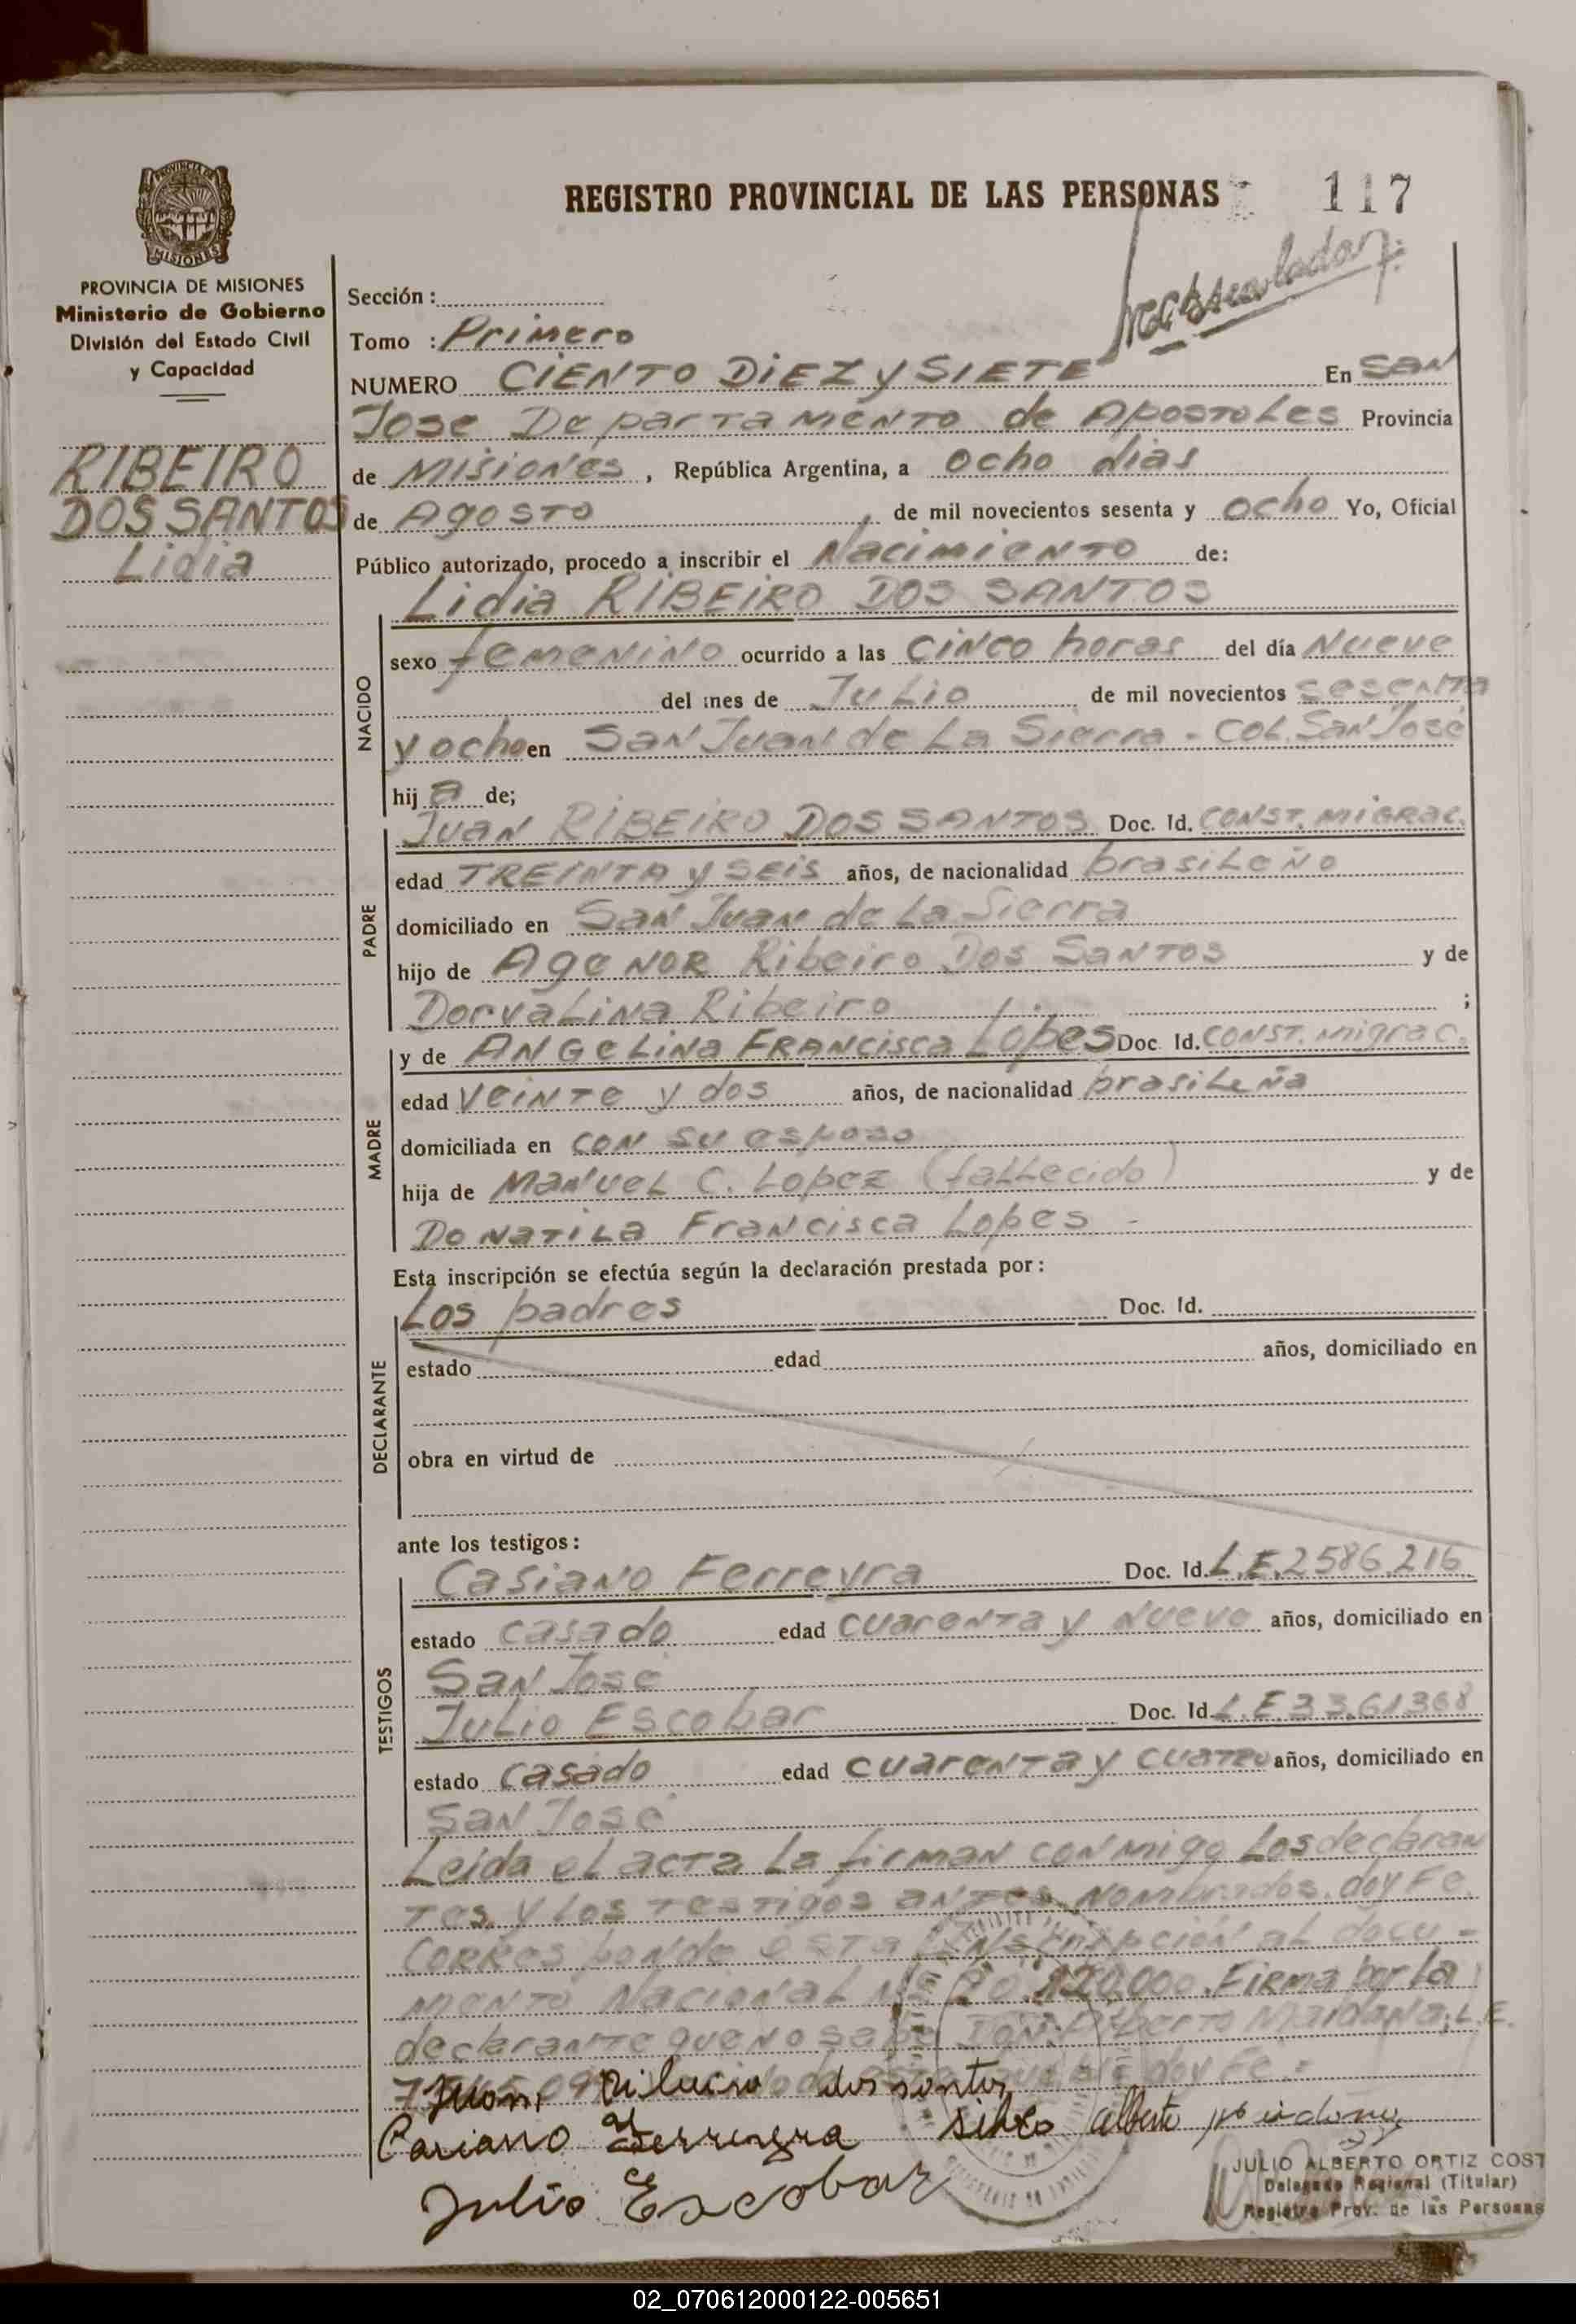 REGISTRO PROVINCIAL DE LAS PERSONAS 117
PROVINCIA DE MISIONES
Ministerio de Gobierno
División del Estado Civil
y Capacidad
RIBEIRO
DOS SANTOS
Lidia
Sección :
Tomo : Primero
NUMERO CIENTO DIEZ Y SIETE En SAN
Jose Departamento de Apostoles Provincia
de Misiones , República Argentina, a ocho dias
de Agosto de mil novecientos sesenta y ocho Yo, Oficial
Público autorizado, procedo a inscribir el Nacimiento de:
Lidia RIBEIRO DOS SANTOS
NACIDO
sexo femenino ocurrido a las cinco horas del día Nueve
del mes de Julio de mil novecientos sesenta
y ocho en San Juan de La Sierra - Col. San José
hij a de;
PADRE
Juan RIBEIRO DOS SANTOS Doc. Id. CONST. MIGRAC.
edad TREINTA y SEIS años, de nacionalidad brasileño
domiciliado en San Juan de La Sierra
hijo de Agenor Ribeiro Dos Santos y de
Dorvalina Ribeiro ;
MADRE
y de ANGELINA FRANCISCA Lopes Doc. Id. CONST. migrac.
edad veinte y dos años, de nacionalidad brasileña
domiciliada en con su esposo
hija de Manuel C. Lopez (fallecido) y de
Donatila Francisca Lopes -
Esta inscripción se efectúa según la declaración prestada por :
DECLARANTE
Los padres Doc. Id.
estado edad años, domiciliado en
obra en virtud de
ante los testigos :
TESTIGOS
Casiano Ferreyra Doc. Id. L.E. 2586.216
estado casado edad cuarenta y nueve años, domiciliado en
San José
Julio Escobar Doc. Id. L.E. 33.61368
estado casado edad cuarenta y cuatro años, domiciliado en
San José
Leida el acta la firman conmigo los declaran
tes y los testigos antes nombrados. doy Fe.
Corresponde esta inscripción al docu -
mento Nacional Nº 20.120.000. Firma por la
declarante que no sabe Don Alberto Maidana; L.E.
doy Fe. -
Juan dos santos
Casiano Ferreyra Alberto
Julio Escobar
JULIO ALBERTO ORTIZ COST
Delegado Regional (Titular)
Registro Prov. de las Personas
02_070612000122-005651